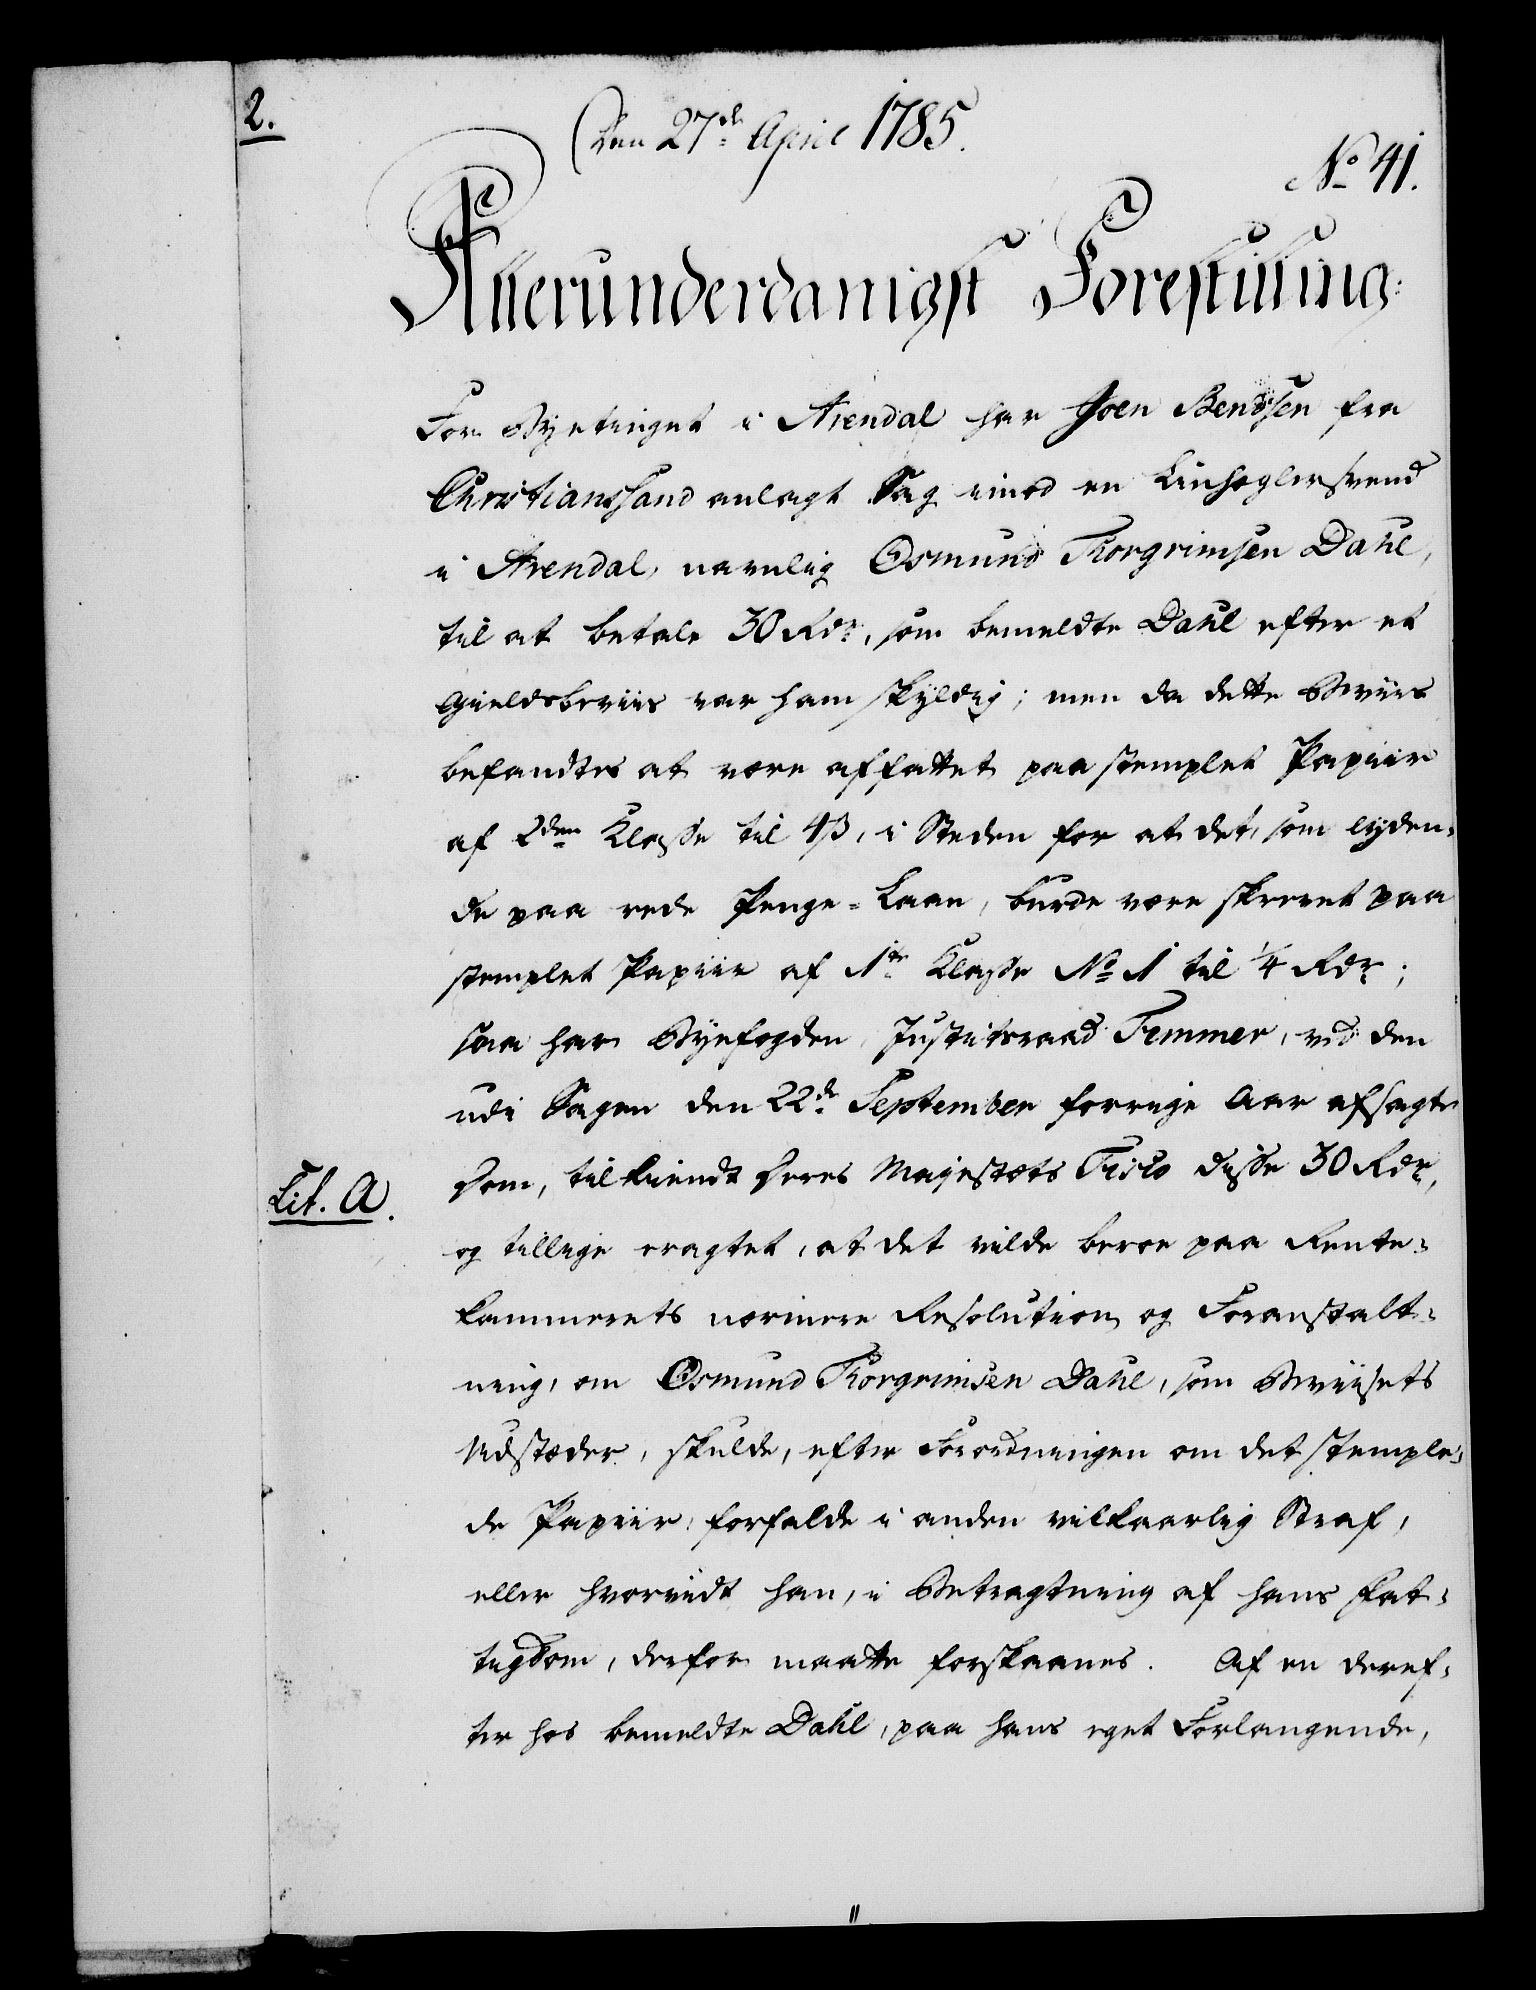 2.
Den 27de April 1785.
No 41.
Allerunderdanigst Forestilling.
For Byetinget i Arendal har Joen Bendsen fra
Christianssand anlagt Sag imod en
i Arendal, navnlig Osmund Torgrimsen Dahl,
til at betale 30 Rdr, som bemeldte Dahl efter et
Gieldsbeviis var ham skyldig; men da dette Beviis
befandtes at være affattet paa stemplet Papiir
af 2den Klasse til 4ß, i Steden for at det, som lyden-
de paa rede Penge-Laan, burde være skrevet paa
stemplet Papiir af 1te Klasse No 1 til 1/4 Rdr;
saa har Byefogden, Justitsraad Temmer, ved den
udi Sagen den 22de September forrige Aar afsagte
Lit. A.
Dom, tilkiendt Deres Majestæts Fisco disse 30 Rdr,
og tillige eragtet, at det vilde beroe paa Rente-
kammerets nærmere Resolution og Foranstalt-
ning, om Osmund Torgrimsen Dahl, som Beviisets
Udstæder, skulde, efter Forordningen om det stemple-
de Papiir, forfalde i anden vilkaarlig Straf,
eller hvorvidt han, i Betragtning af hans Fat-
tigdom, derfor maatte forskaanes. Af en deref-
ter hos bemeldte Dahl, paa hans eget Forlangende,